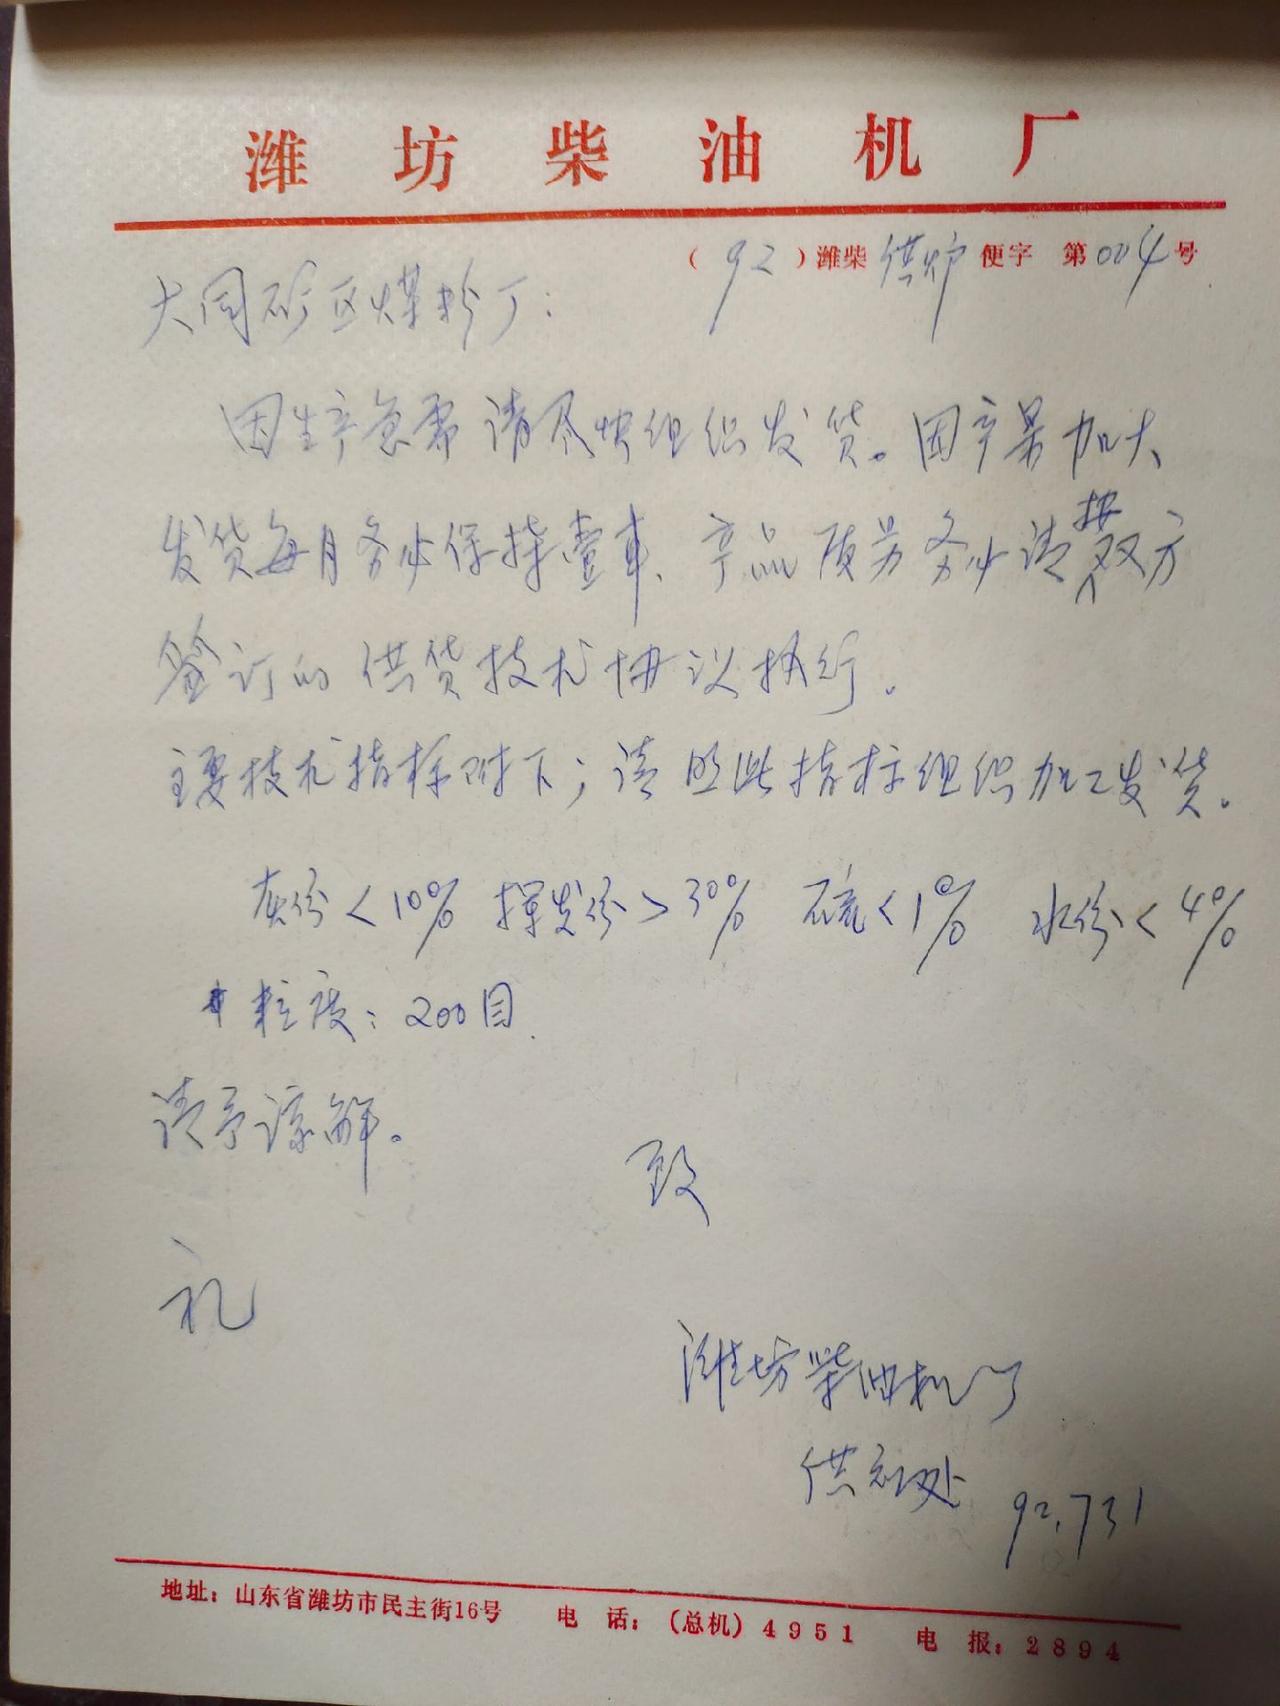 潍坊柴油机厂
(92)潍柴供炉便字 第004号
大同矿区煤粉厂:
因生产急需请尽快组织发货。因产量加大
发货每月务必保持壹车、产品质量务必请按双方
签订的供货技术协议执行。
主要技术指标附下;请照此指标组织加工发货。
灰份<10% 挥发份>30% 硫<1% 水份<4%
粒度:200目
请予谅解。
致
礼
潍坊柴油机厂
供应处 92.7.31
地址:山东省潍坊市民主街16号 电 话:(总机)4951 电 报:2894